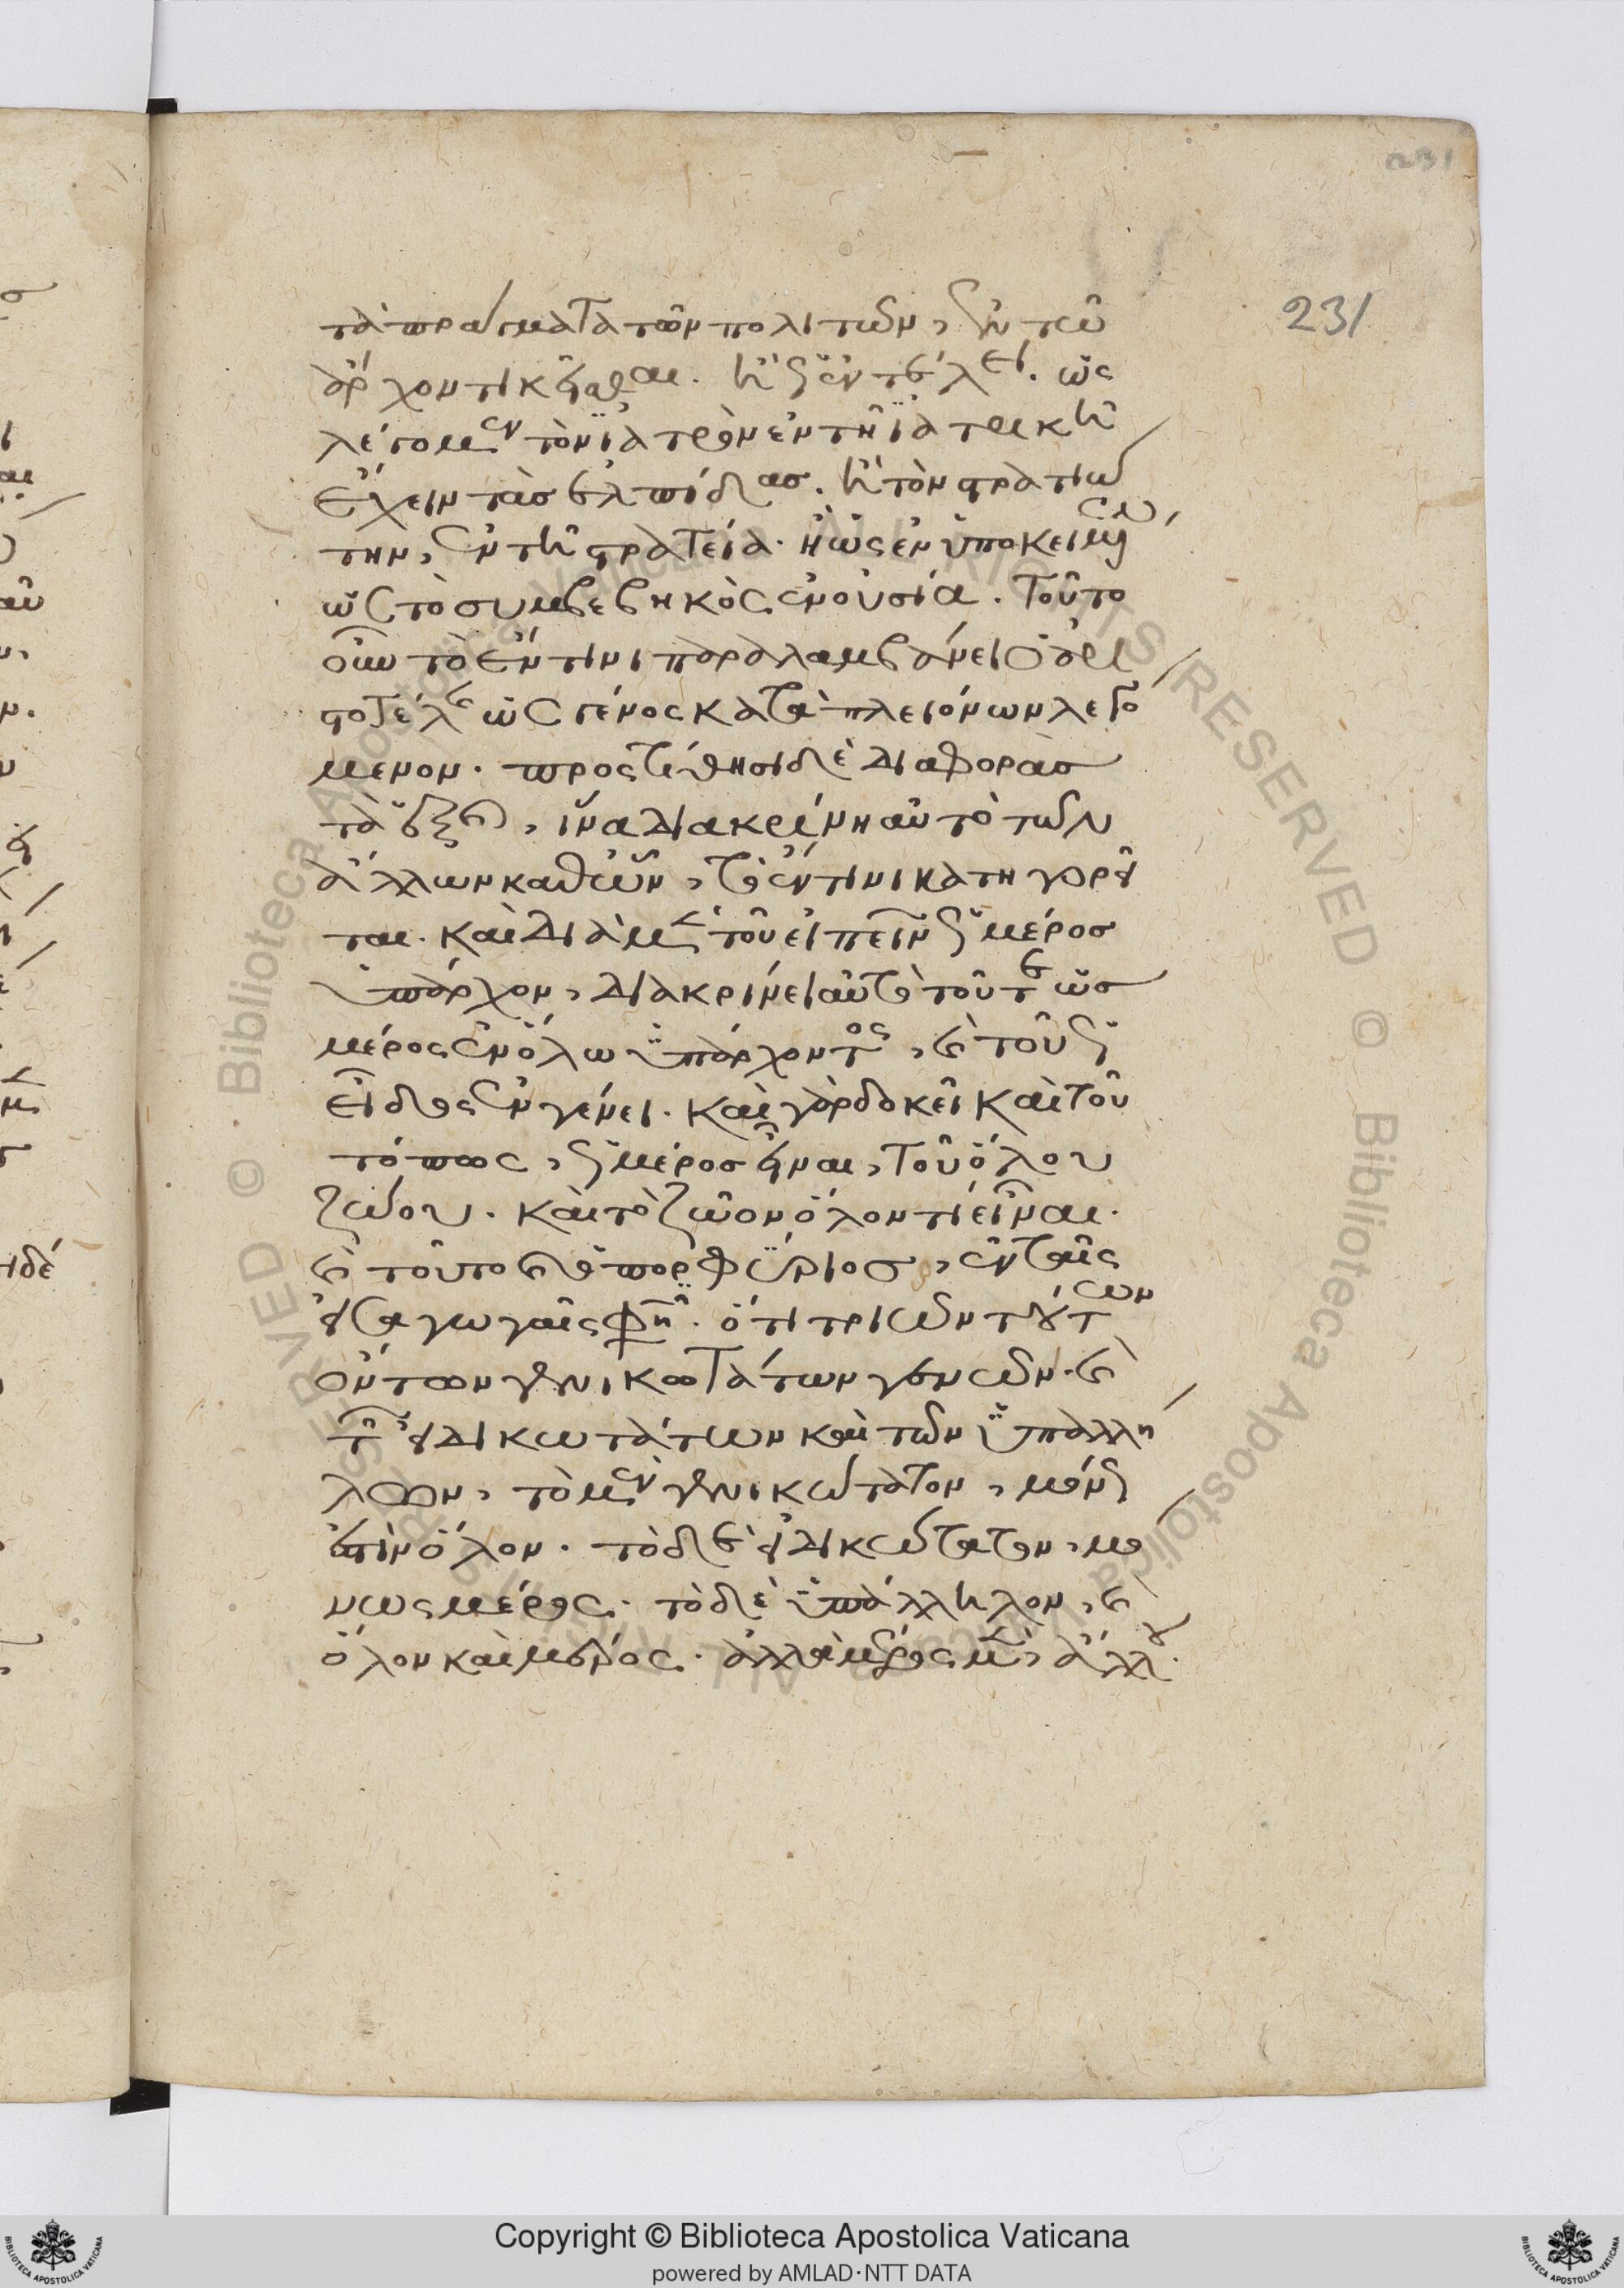 231
τὰ πράγματα τῶν πολιτῶν, ἐν τῶ
ἄρχοντι κεῖσθαι. ἢ ὡς ἐν τέλει. ὡς
λέγομεν τὸν ϊατρὸν ἐν τῆ ϊατρικῆ
ἔχειν τὰς ἐλπίδας. ἢ τὸν στρατιώ
την, ἐν τῆ στρατεία. ἢ ὡς ἐν ὑποκειμένω,
ὡς τὸ συμβεβηκὸς ἐν οὐσία. τοῦτο
οὖν τὸ ἔν τινι παραλαμβάνει ὁ ἀρι
στοτέλης ὡς γένος κατὰ πλειόνων λεγό
μενον. προστίθησι δὲ διαφορὰς
τὰ ἑξῆς, ἵνα διακρίνη αὐτὸ τῶν
ἄλλων καθ' ὧν, τὸ ἔν τινι κατηγορεῖ
ται. καὶ διὰ μὲν τοῦ εἰπεῖν ὡς μέρος
ὑπάρχον, διακρίνει αὐτὸ τοῦ τε ὡς
μέρος ἐν ὅλω ὑπάρχοντος, καὶ τοῦ ὡς
εἶδος ἐν γένει. καὶ γὰρ δοκεῖ καὶ τοῦ
το πως, ὡς μέρος εἶναι, τοῦ ὅλου
ζώου. καὶ τὸ ζῶον ὅλον τι εἶναι.
καὶ τοῦτο καὶ ὁ πορφύριος, ἐν ταῖς
εἰσαγωγαῖς φησὶ. ὅτι τριῶν τούτων
ὄντων γενικωτάτων γενῶν. καὶ
τῶν εἰδικωτάτων καὶ τῶν ὑπαλλή
λων, τὸ μὲν γενικώτατον, μόνως
ἐστὶν ὅλον. τὸ δὲ εἰδικώτατον, μό
νως μέρος. τὸ δὲ ὑπάλληλον, καὶ
ὅλον καὶ μέρος. ἀλλὰ μέρος μὲν, ἄλλου.
Copyright © Biblioteca Apostolica Vaticana
powered by AMLAD·NTT DATA